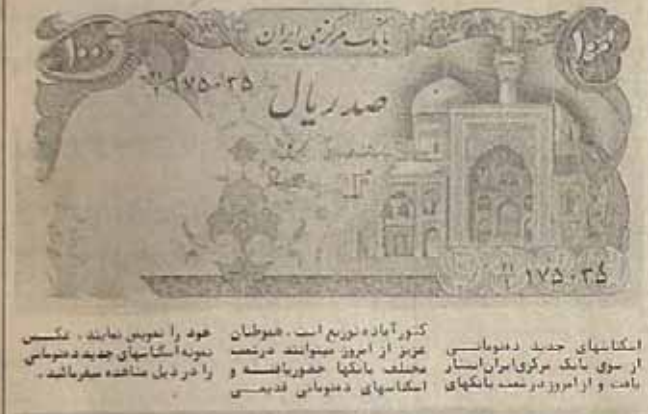 بانک مرکزی ایران
۱۰۰
۱۰۰
۱۷۵۰۳۵
صد ریال
۱۷۵۰۳۵
اسکناسهای جدید ده‌تومانــی
از سوی بانک مرکزی ایران انتشار
یافت و از امروز در شعب بانکهای
کشور آماده توزیع است. هموطنان
عزیز از امروز میتوانند در شعب
مختلف بانکها حضور یافتــه و
اسکناسهای ده‌تومانی قدیمــی
خود را تعویض نمایند. عکــس
نمونه اسکناسهای جدید ده‌تومانی
را در ذیل مشاهده میفرمائید.